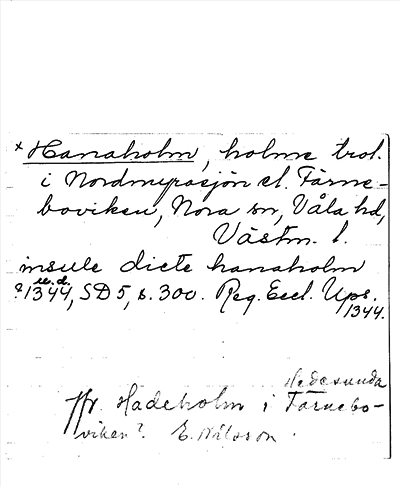 × Hanaholm, holme trol.
i Nordmyrasjön el. Färne-
boviken, Nora sn, Våla hd,
Västm. l.
insule dicte hanaholm
u.d.
? 1344, SD 5, s. 300. Reg. Eccl. Ups.
1344.
Hedesunda
Jfr. Hadeholm i Färnebo-
viken? E. Nilsson.